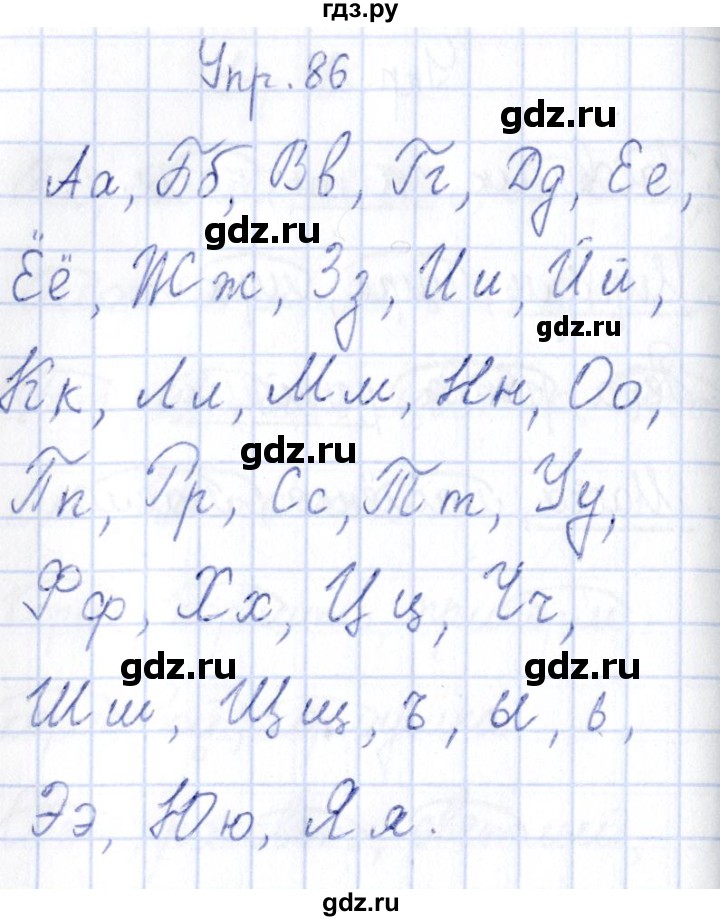 гдз.ру
Упр. 86
gdz.ru
Аа, Бб, Вв, Гг, Дд, Ее,
gdz.ru
Ёё, Жж, Зз, Ии, Йй,
gdz.ru
Кк, Лл, Мм, Нн, Оо,
gdz.ru
Пп, Рр, Сс, Тт, Уу,
Фф, Хх, Цц, Чч,
gdz.ru gdz.ru
Шш, Щщ, ъ, ы, ь,
Ээ, Юю, Яя.
gdz.ru